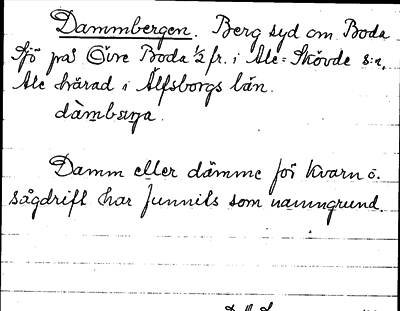 Dammbergen. Berg syd om Boda
sjö på Övre Boda ½ fr. i Ale-Skövde s:n,
Ale härad i Älfsborgs län.
dàmbærja.
Damm eller dämme för kvarn o.
sågdrift har funnits som namngrund.